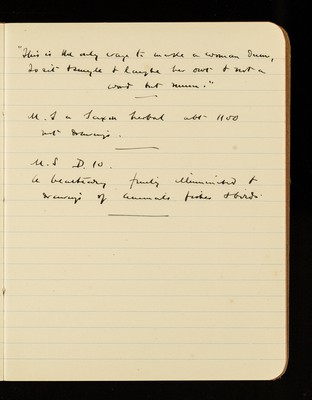 "This is the only waye to make a woman dum,
To sit & smyle & laughe her owt & not a
word but mum."
M.S a Saxon herbal abt 1100
wt drawings.
M.S D. 10.
A beastiary finely illuminated &
drawings of animals fishes & birds.